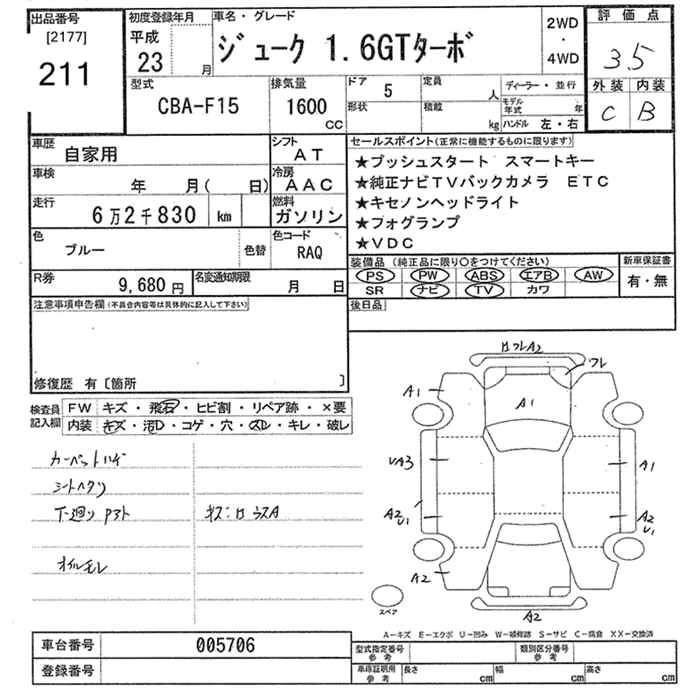 出品番号
[2177]
211
初度登録年月
平成
23
月
車名・グレード
ジューク 1.6GTターボ
2WD
・
4WD
評価点
3.5
外装 内装
C B
型式
CBA-F15
排気量
1600
CC
ドア
5
形状
定員
人
積載
kg
ディーラー・並行
モデル年式
年
ハンドル 左・右
車歴
自家用
シフト
AT
車検
年 月( 日)
冷房
AAC
走行
6万2千830 km
燃料
ガソリン
色
ブルー
色替
色コード
RAQ
R券
9,680円
名変通知期限
月 日
セールスポイント(正常に機能するものに限ります)
★プッシュスタート スマートキー
★純正ナビTVバックカメラ ETC
★キセノンヘッドライト
★フォグランプ
★VDC
装備品 (純正品に限り○をつけてください)
PS PW ABS エアB AW
SR ナビ TV カワ
新車保証書
有・無
後日品
注意事項申告欄(不具合内容等は具体的に記入して下さい)
修復歴 有〔箇所 〕
検査員
記入欄
FW キズ・飛石・ヒビ割・リペア跡・×要
内装 キズ・汚レ・コゲ・穴・スレ・キレ・破レ
カーペットハゲ
シートヘタリ
下廻り
オイルモレ
A2
フレ
A1
A1
A1
A2
U1
A2
U1
A2
A2
スペア
A-キズ E-エクボ U-凹み W-補修跡 S-サビ C-腐食 XX-交換済
車台番号
005706
登録番号
型式指定番号
参考
類別区分番号
参考
車庫証明用
参考
長さ cm
幅 cm
高さ cm